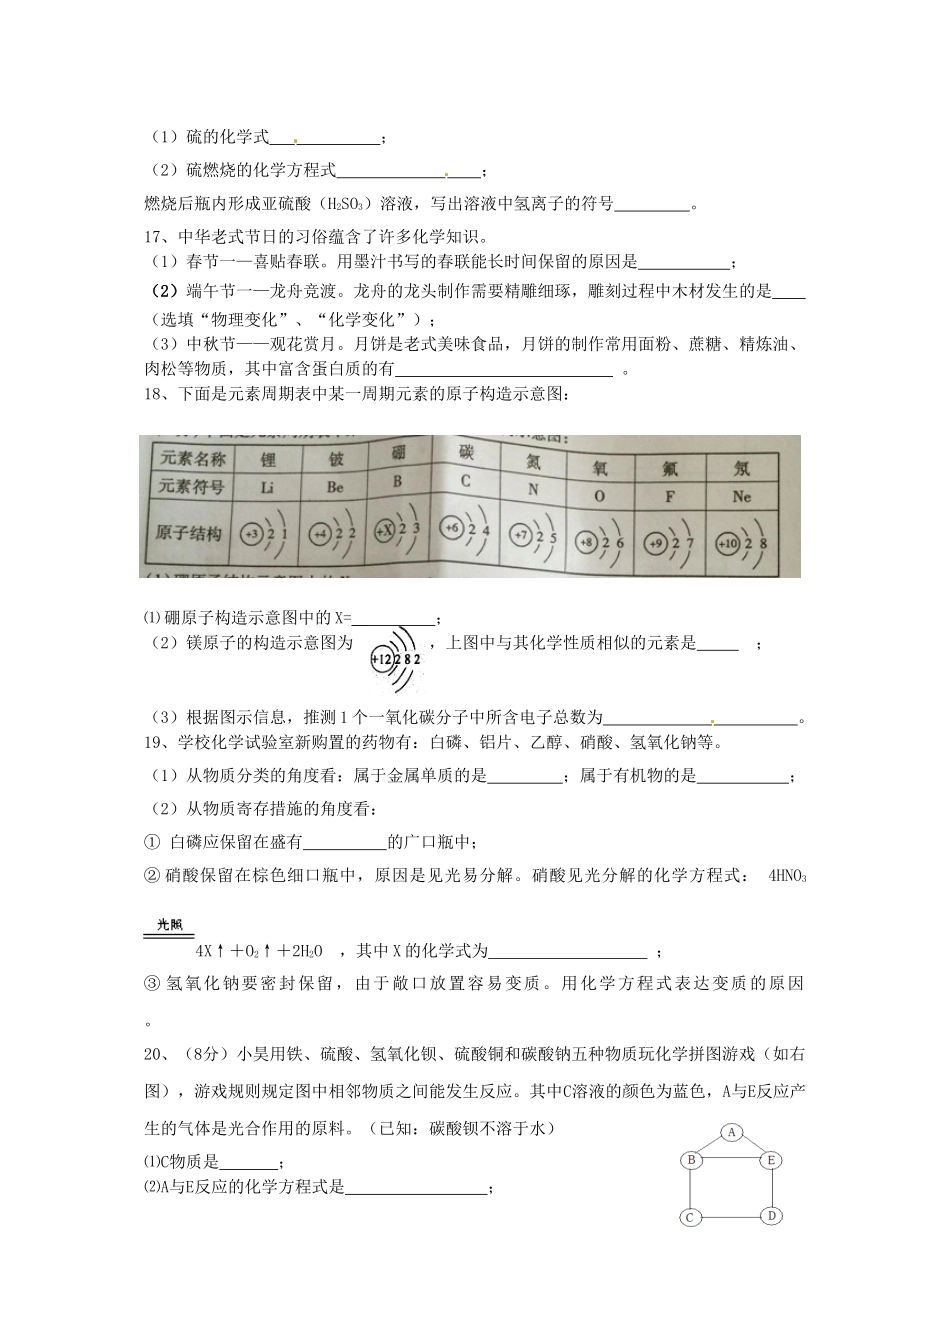 （1）硫的化学式____________；
（2）硫燃烧的化学方程式________________；
燃烧后瓶内形成亚硫酸（H₂SO₃）溶液，写出溶液中氢离子的符号_________。
17、中华老式节日的习俗蕴含了许多化学知识。
（1）春节一—喜贴春联。用墨汁书写的春联能长时间保留的原因是___________；
（2）端午节一—龙舟竞渡。龙舟的龙头制作需要精雕细琢，雕刻过程中木材发生的是____
（选填“物理变化”、“化学变化”）；
（3）中秋节——观花赏月。月饼是老式美味食品，月饼的制作常用面粉、蔗糖、精炼油、
肉松等物质，其中富含蛋白质的有__________________________ 。
18、下面是元素周期表中某一周期元素的原子构造示意图：
元素名称 锂 铍 硼 碳 氮 氧 氟 氖
元素符号 Li Be B C N O F Ne
原子结构 +3 2 1 +4 2 2 +X 2 3 +6 2 4 +7 2 5 +8 2 6 +9 2 7 +10 2 8
⑴ 硼原子构造示意图中的 X=__________；
（2）镁原子的构造示意图为 +12 2 8 2 ，上图中与其化学性质相似的元素是_____ ；
（3）根据图示信息，推测 1 个一氧化碳分子中所含电子总数为_______________________。
19、学校化学试验室新购置的药物有：白磷、铝片、乙醇、硝酸、氢氧化钠等。
（1）从物质分类的角度看：属于金属单质的是_________；属于有机物的是___________；
（2）从物质寄存措施的角度看：
① 白磷应保留在盛有__________的广口瓶中；
② 硝酸保留在棕色细口瓶中，原因是见光易分解。硝酸见光分解的化学方程式： 4HNO₃
光照
4X↑＋O₂↑＋2H₂O ，其中 X 的化学式为___________________ ；
③ 氢氧化钠要密封保留，由于敞口放置容易变质。用化学方程式表达变质的原因
。
20、（8分）小昊用铁、硫酸、氢氧化钡、硫酸铜和碳酸钠五种物质玩化学拼图游戏（如右
图），游戏规则规定图中相邻物质之间能发生反应。其中C溶液的颜色为蓝色，A与E反应产
生的气体是光合作用的原料。（已知：碳酸钡不溶于水）
⑴C物质是_______；
⑵A与E反应的化学方程式是_________________；
A
B E
C D